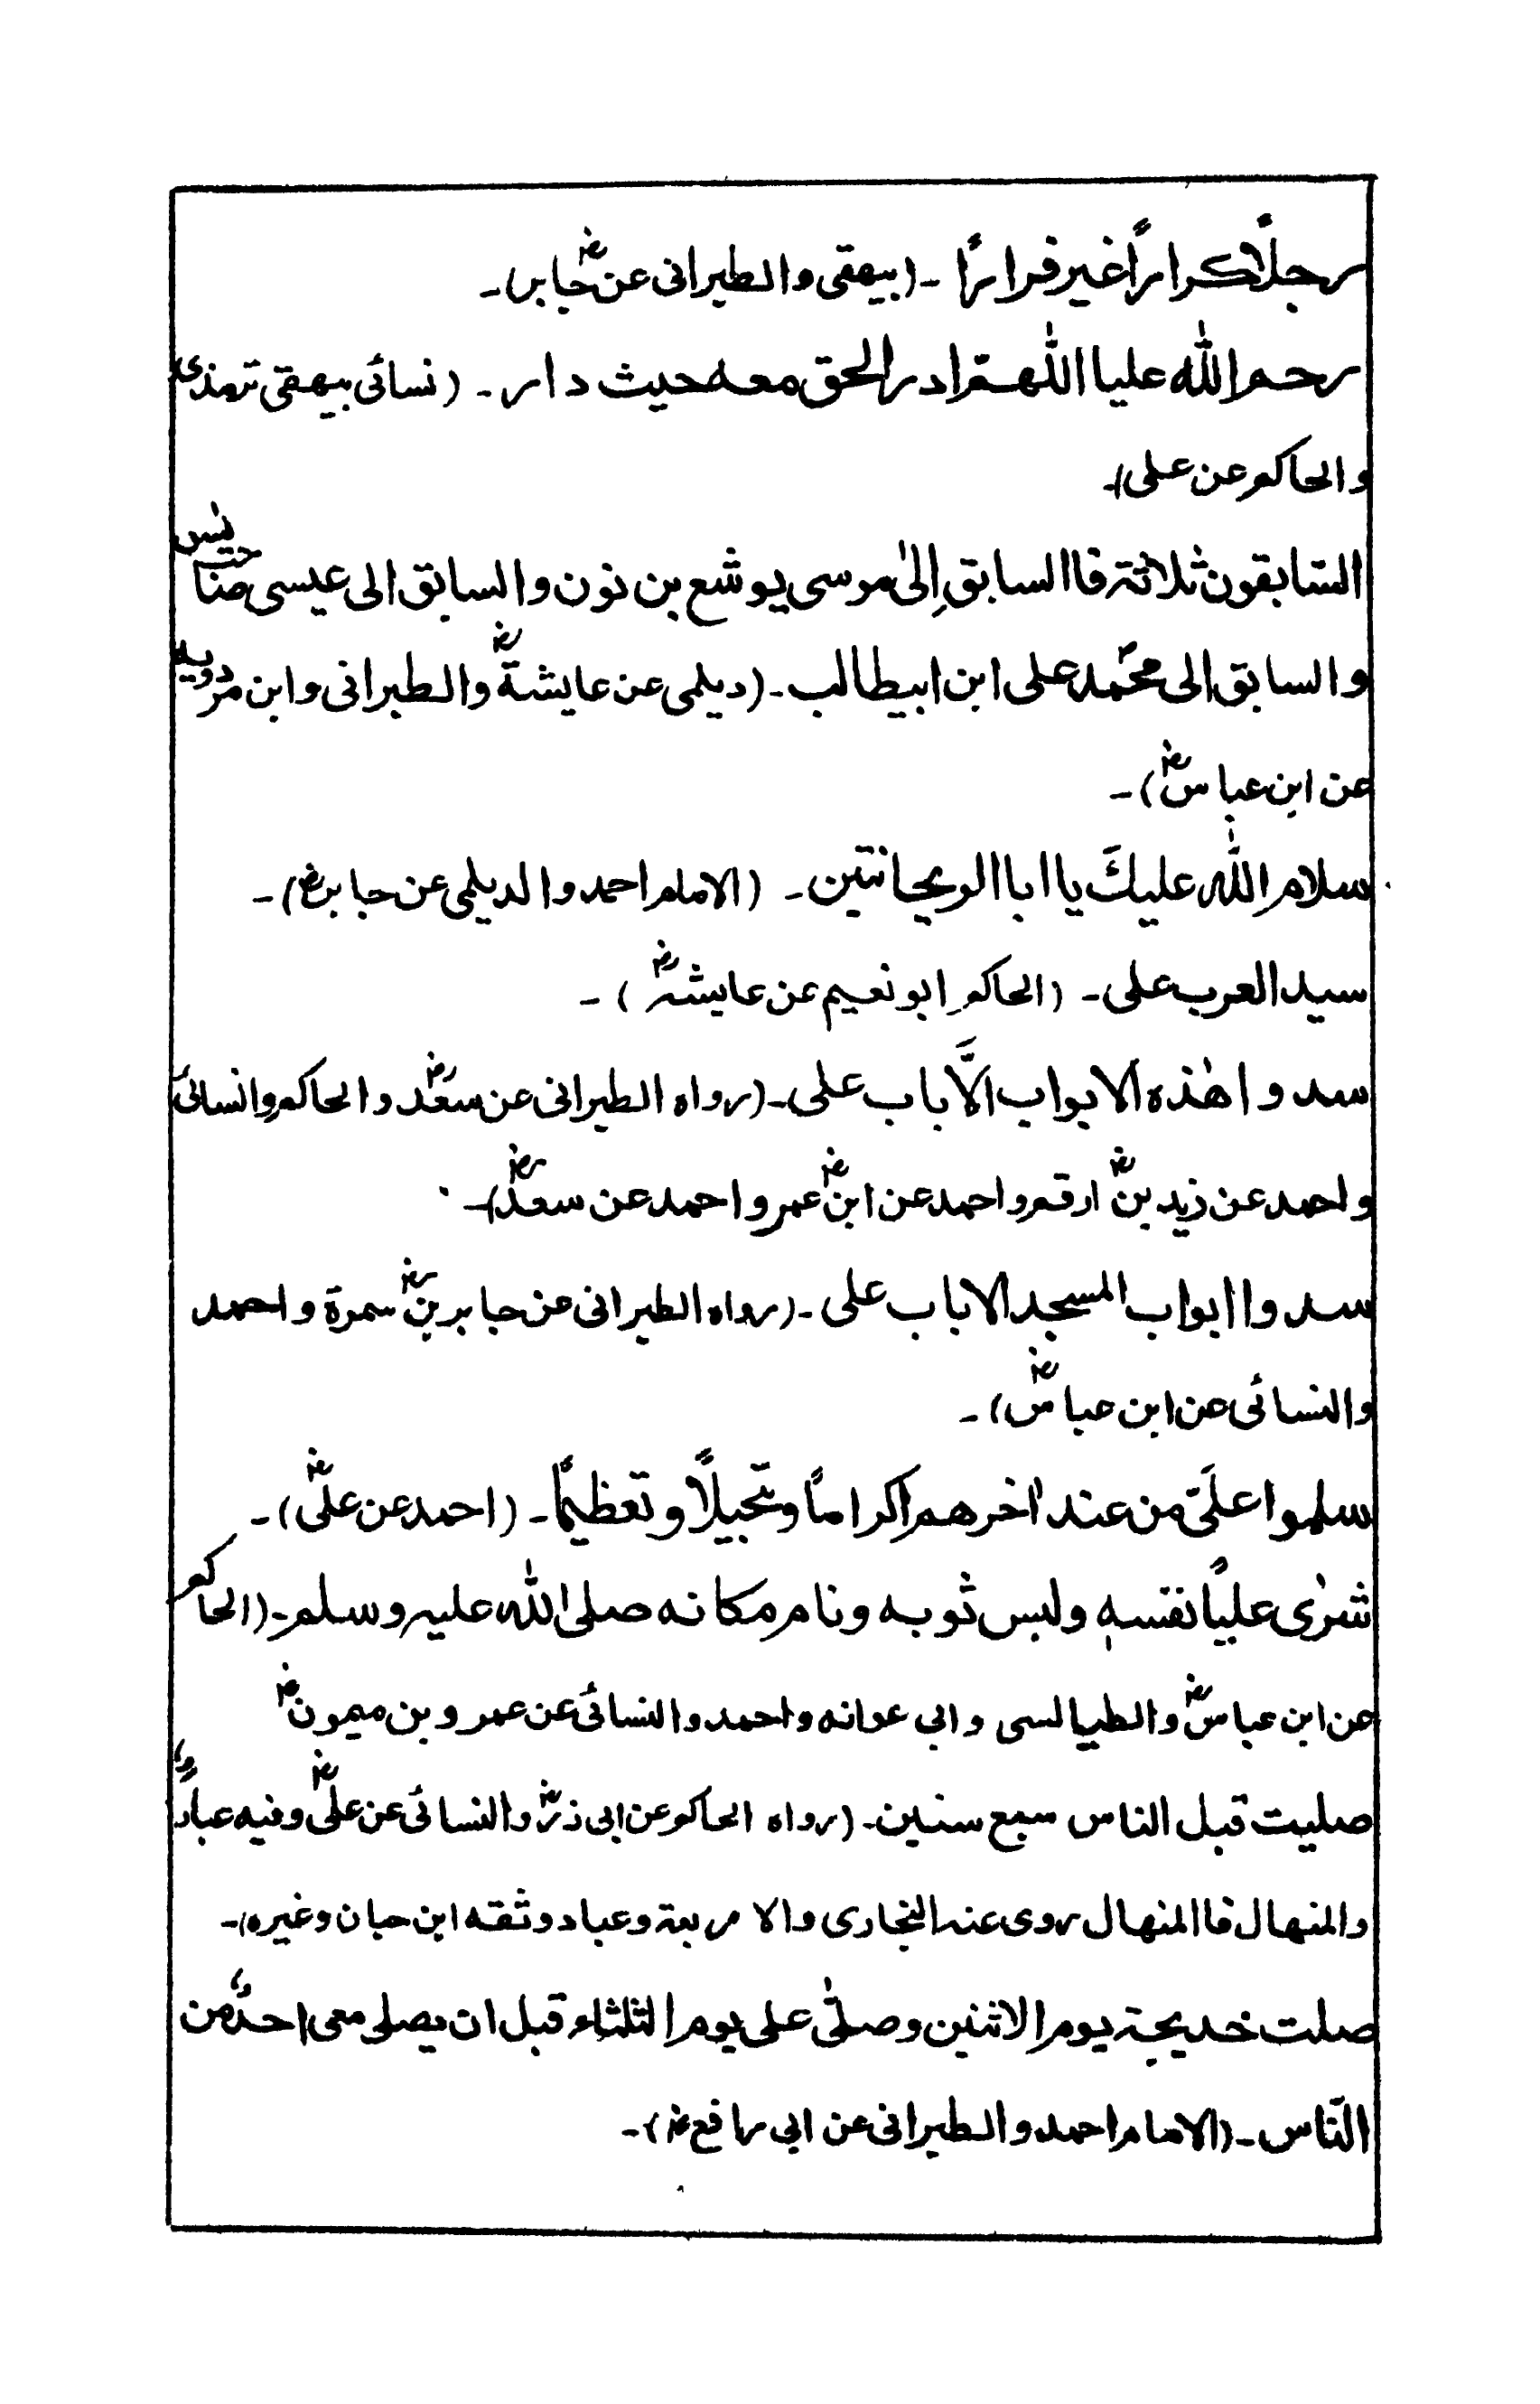 رجلًا كرارًا غير فرارًا ۔ (بیهقی والطبرانی عن جابرؓ)۔
رحم الله عليا اللّٰهمّ ادر الحق معه حيث دار ۔ (نسائی بیهقی ترمذی
والحاکم عن علی)۔
السّابقون ثلاثة فاالسابق إلىٰ موسى يوشع بن نون والسابق الى عيسى صاحب يٰس
والسابق الى محمّد على ابن ابيطالب ۔ (دیلمی عن عایشةؓ والطبرانی وابن مردویه
عن ابن عباسؓ)۔
سلام الله عليكَ يا ابا الريحانتين ۔ (الامام احمد والدیلمی عن جابرؓ)۔
سيد العرب على ۔ (الحاکم ابو نعیم عن عایشهؓ)۔
سدوا هٰذه الابواب الّا باب على ۔ (رواه الطبرانی عن سعدؓ والحاکم والنسائی
واحمد عن زید بنؓ ارقم واحمد عن ابنؓ عمر واحمد عن سعدؓ)۔
سدوا ابواب المسجد الا باب على ۔ (رواه الطبرانی عن جابر بنؓ سمرة واحمد
والنسائی عن ابن عباسؓ)۔
سلموا علىّ من عند اٰخرهم اكرامًا وتبجيلًا وتعظيمًا ۔ (احمد عن علیؓ)۔
شرٰى عليًا نفسهٖ ولبس ثوبه ونام مكانه صلى الله عليه وسلم ۔ (الحاکم
عن ابن عباسؓ والطیالسی وابی عوانه واحمد والنسائی عن عمرو بن میمونؓ
صليت قبل الناس سبع سنين ۔ (رواه الحاکم عن ابی ذرؓ والنسائی عن علیؓ وفیه عبادٌ
والمنهال فاالمنهال روی عنه البخاری والاربعة وعباد وثقه ابن حبان وغیره)۔
صلت خديجة يوم الاثنين وصلّى على يوم الثلثاء قبل ان يصلى معى احدٌ من
النّاس ۔ (الامام احمد والطبرانی عن ابی رافعؓ)۔